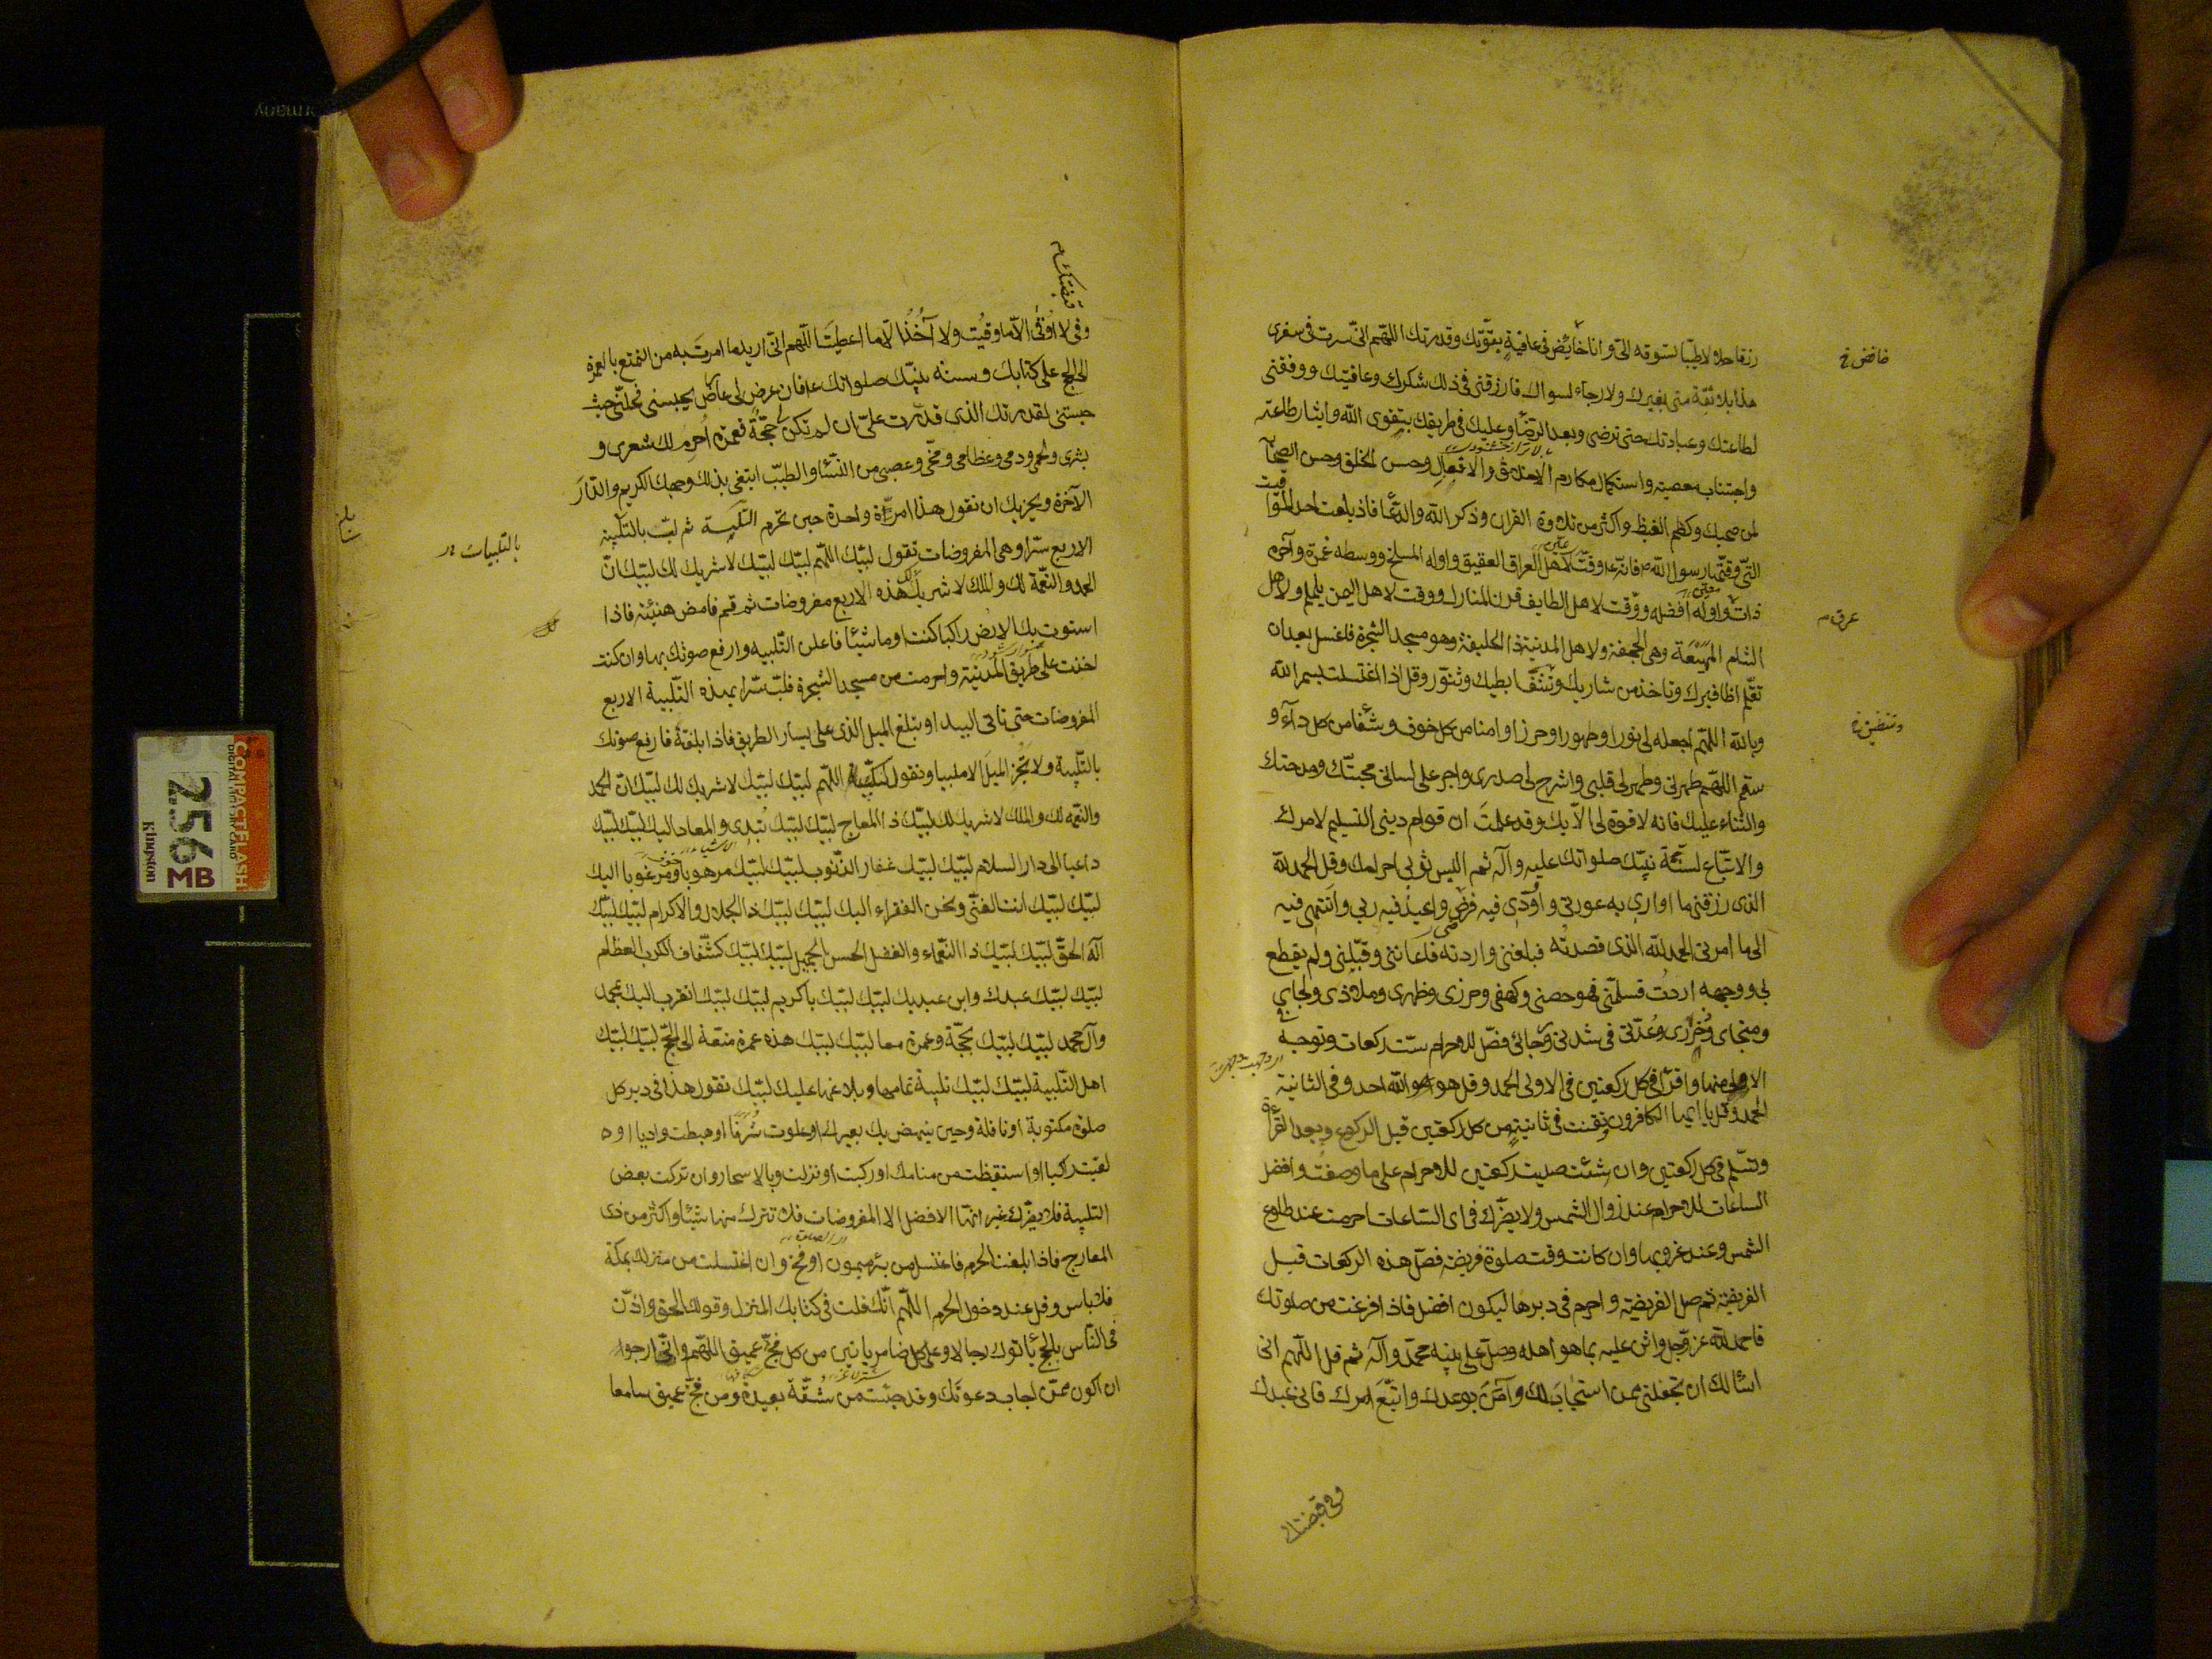 رزقا حلالا طيبا تسوقه الىّ وانا خائض فى عافية بقوّتك وقدرتك اللهم انى سرت فى سفرى
هذا بلا ثقة منى بغيرك ولا رجاء لسواك فارزقنى فى ذلك شكرك وعافيتك ووفقنى
لطاعتك وعبادتك حتى ترضى وبعد الرضا وعليك فى طريقك بتقوى الله وايثار طاعته
واجتناب معصيته واستعمال مكارم الاخلاق والافعال وحسن الخلق وحسن الصحابة
لمن صحبك وكظم الغيظ واكثر من تلاوة القران وذكر الله والدعا فاذا بلغت احد المواقيت
التى وقتها رسول الله ص فانه ع وقت لاهل العراق العقيق واوله المسلخ ووسطه غمرة وآخره
ذات واوله افضله ووقت لاهل الطايف قرن المنازل ووقت لاهل اليمن يلملم ولاهل
الشام المهيعة وهى الجحفة ولاهل المدينة ذا الحليفة وهو مسجد الشجرة فاغتسل بعد ان
تقلم اظافيرك وتاخذ من شاربك وتنتف ابطيك وتتنور وقل اذا اغتسلت بسم الله
وبالله اللهم اجعله لى نورا وطهورا وحرزا وامنا من كل خوف وشفا من كل داء و
سقم اللهم طهرنى وطهر لى قلبى واشرح لى صدرى واجر على لسانى محبتك ومدحتك
والثناء عليك فانه لا قوة لى الّا بك وقد علمت ان قوام دينى التسليم لامرك
والاتباع لسنة نبيك صلواتك عليه وآله ثم البس ثوبى احرامك وقل الحمد لله
الذى رزقنى ما اوارى به عورتى واؤدى فيه فرضى واعبد فيه ربى وانتهى فيه
الى ما امرنى الحمد لله الذى قصدته فبلغنى واردته فاعاننى وقبلنى ولم يقطع
بى ووجهه اردت فسلمنى فهو حصنى وكهفى وحرزى وظهرى وملاذى ولجاى
ومنجاى وذخرى وعدتى فى شدتى ورجائى فصل للاحرام ست ركعات وتوجه
الاولى منها واقرأ فى كل ركعتين فى الاولى الحمد وقل هو الله احد وفى الثانية
الحمد وقل يا ايها الكافرون وتقنت فى ثانية من كل ركعتين قبل الركوع وبعد القرأة
وتسلم فى كل ركعتين وان شئت صليت ركعتين للاحرام على ما وصفت وافضل
الساعات للاحرام عند زوال الشمس ولا يضرك فى اى الساعات احرمت عند طلوع
الشمس وعند غروبها وان كانت وقت صلوة فريضة فصل هذه الركعات قبل
الفريضة ثم صل الفريضة واحرم فى دبرها ليكون افضل فاذا فرغت من صلوتك
فاحمد الله عز وجل واثن عليه بما هو اهله وصل على نبيه محمد وآله ثم قل اللهم انى
اسالك ان تجعلنى ممن استجاب لك وآمن بوعدك واتبع امرك فانى عبدك
وفى قبضتك
خائض خ
عرق
وتنظيف خ
قبضتك
وفى لا اوقى الا ما وقيت ولا آخذ الا ما اعطيت اللهم انى اريد ما امرت به من التمتع بالعمرة
الى الحج على كتابك وسنة نبيك صلواتك ع فان عرض لى عارض يحبسنى فحلنى حيث
حبستنى لقدرتك الذى قدرت علىّ ان لم تكن حجة فعمرة احرم لك شعرى و
بشرى ولحمى ودمى وعظامى ومخى وعصبى من النسا والطيب ابتغى بذلك وجهك الكريم والدار
الآخرة ويجزيك ان تقول هذا مرة واحدة حين تحرم التلبية ثم لب بالتلبية
الاربع سرّا وهى المفروضات تقول لبيك اللهم لبيك لبيك لا شريك لك لبيك ان
الحمد والنعمة لك والملك لا شريك لك هذه الاربع مفروضات ثم قم فامض هنيئة فاذا
استوت بك الارض راكبا كنت او ماشيا فاعلن التلبية وارفع صوتك بها وان كنت
اخذت على طريق المدينة واحرمت من مسجد الشجرة فلب سرّا بهذه التلبية الاربع
المفروضات حتى تاتى البيدا وتبلغ الميل الذى على يسار الطريق فاذا بلغته فارفع صوتك
بالتلبية ولا تجز الميل الا ملبيا وتقول لبيك اللهم لبيك لبيك لا شريك لك لبيك ان الحمد
والنعمة لك والملك لا شريك لك لبيك ذا المعارج لبيك لبيك تبدى والمعاد اليك لبيك لبيك
داعيا الى دار السلام لبيك لبيك غفار الذنوب لبيك لبيك مرهوبا ومرغوبا اليك
لبيك لبيك انت الغنى ونحن الفقراء اليك لبيك لبيك ذا الجلال والاكرام لبيك لبيك
اله الحق لبيك لبيك ذا النعماء والفضل الحسن الجميل لبيك لبيك كشاف الكرب العظام
لبيك لبيك عبدك وابن عبديك لبيك لبيك يا كريم لبيك لبيك اتقرب اليك بمحمد
وآل محمد لبيك لبيك بحجة وعمرة معا لبيك لبيك هذه عمرة متعة الى الحج لبيك لبيك
اهل التلبية لبيك لبيك تلبية تمامها وبلاغها عليك لبيك تقول هذا فى دبر كل
صلوة مكتوبة او نافلة وحين ينهض بك بعيرك او علوت شرفا او هبطت واديا او
لقيت راكبا او استيقظت من منامك او ركبت او نزلت وبالاسحار وان تركت بعض
التلبية فلا يضرك غير انها الافضل الا المفروضات فلا تترك منها شيئا واكثر من ذى
المعارج فاذا بلغت الحرم فاغتسل من بئر ميمون او فخ وان اغتسلت من منزلك بمكة
فلا باس وقل عند دخول الحرم اللهم انك قلت فى كتابك المنزل وقولك الحق واذن
فى الناس بالحج ياتوك رجالا وعلى كل ضامر ياتين من كل فج عميق اللهم وانى ارجوا
ان اكون ممن اجاب دعوتك وقد جئت من شقة بعيدة ومن فج عميق سامعا
بالتلبيات
COMPACTFLASH
256
MB
Kingston